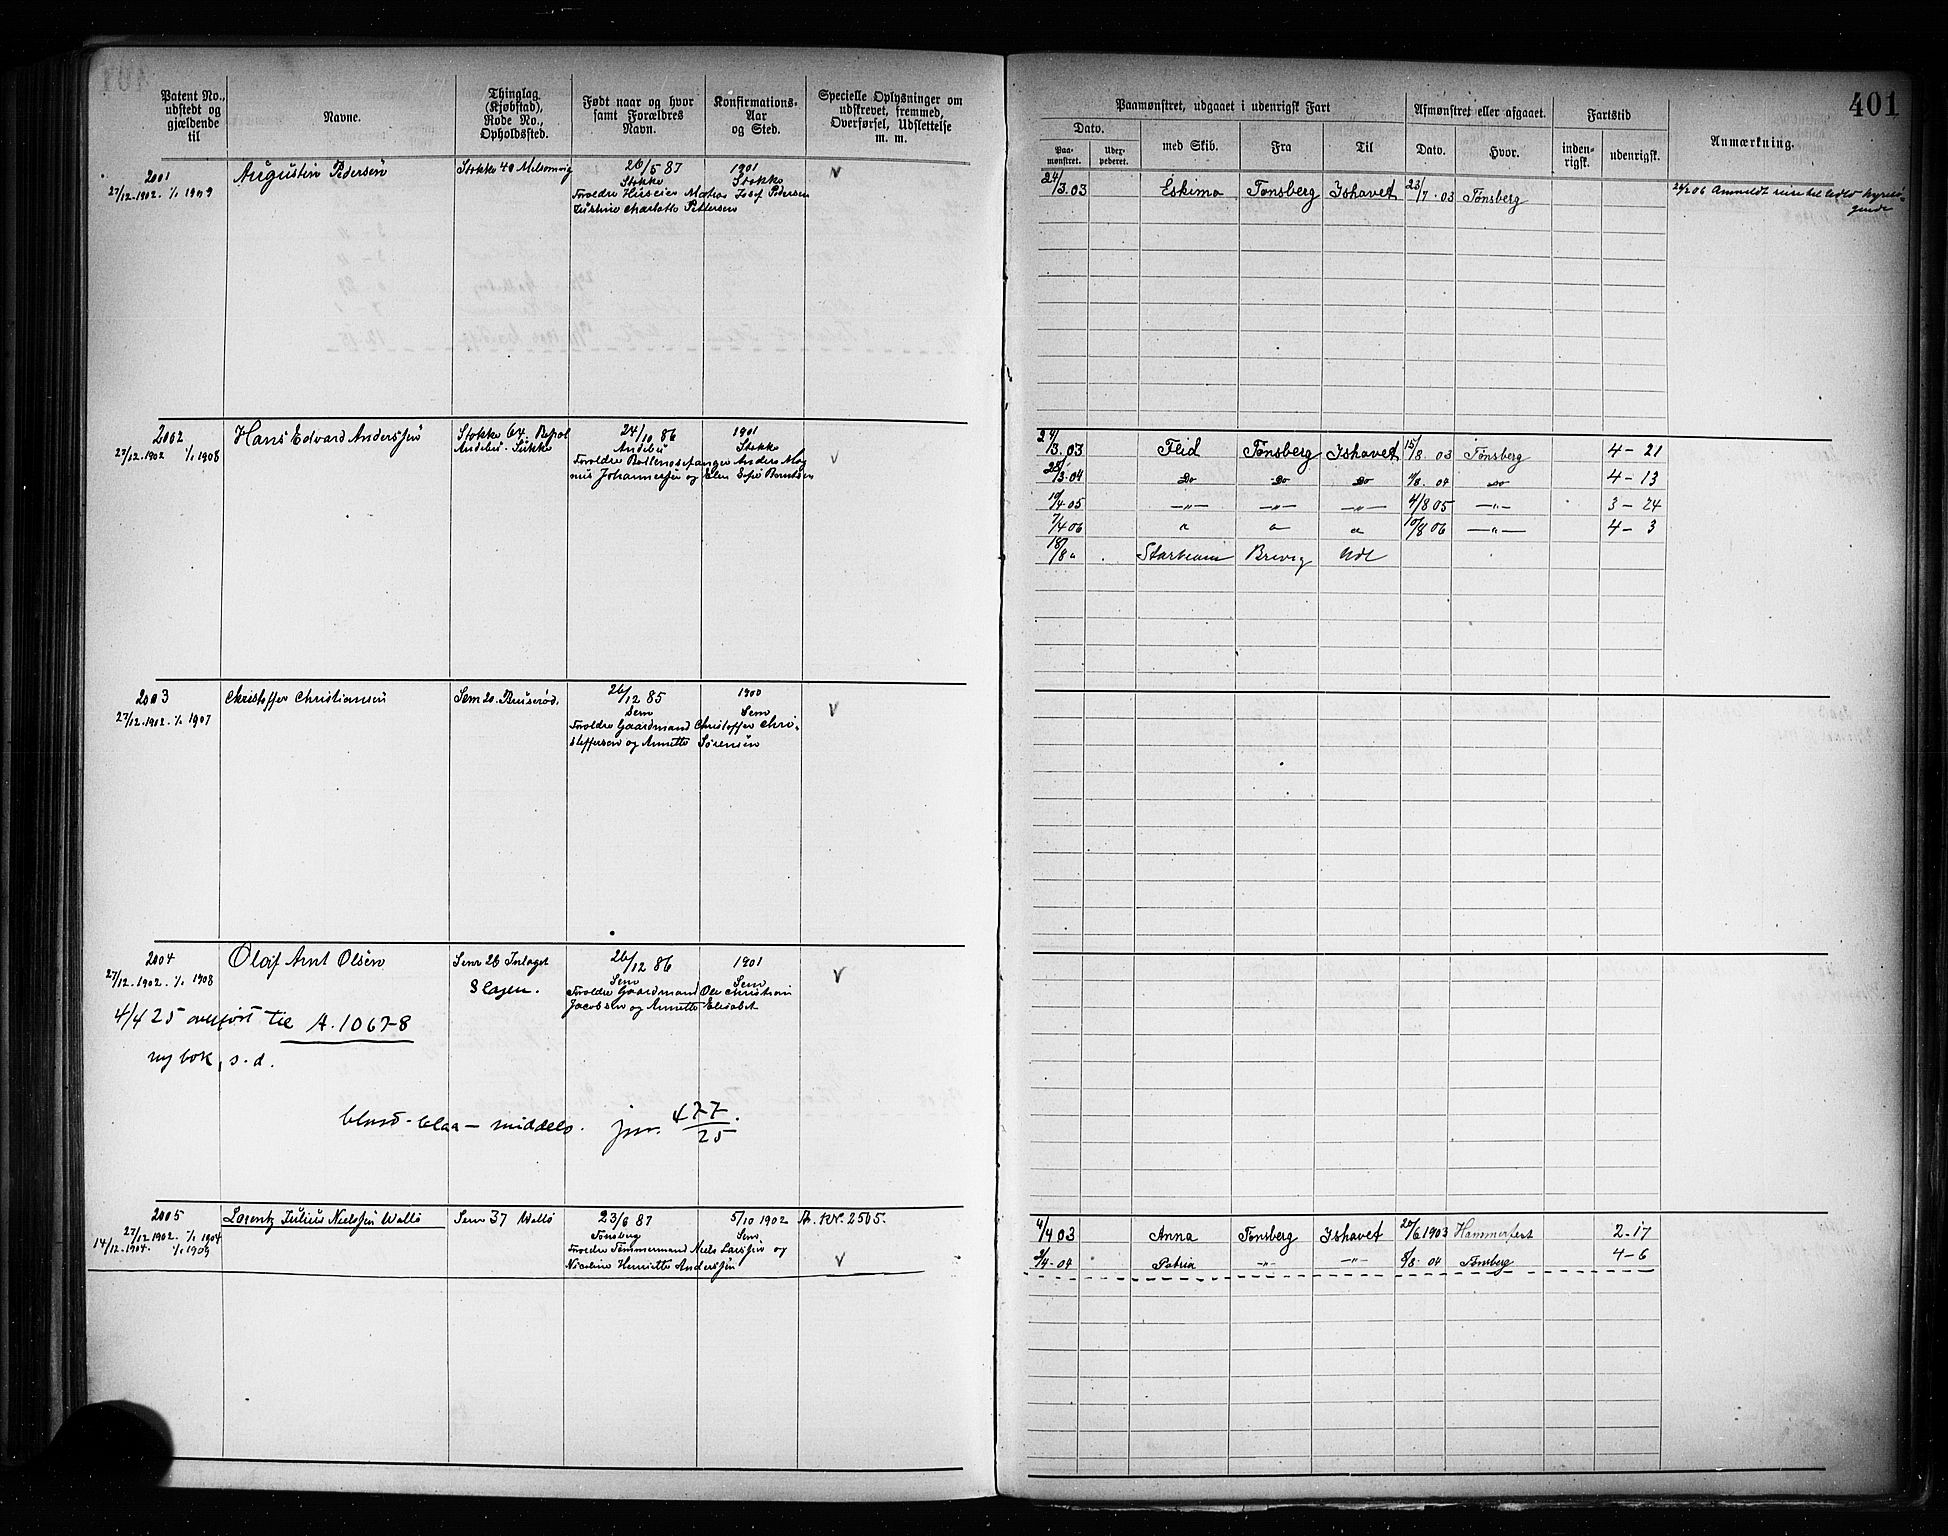 401
Patent No., udstedt og gjældende til
Navne.
Thinglag (Kjøbstad), Rode No., Opholdssted.
Født naar og hvor samt Forældres Navn.
Konfirmations- Aar og Sted.
Specielle Oplysninger om udskrevet, fremmed, Overførsel, Udslettelse m. m.
Paamønstret, udgaaet i udenrigsk Fart
Afmønstret eller afgaaet.
Fartstid
Anmærkning.
Dato.
Paa- mønstret.
Udex- pederet.
med Skib.
Fra
Til
Dato.
Hvor.
inden- rigsk.
udenrigsk.
2001
27/12.1902. 1/1 1909
Augustin Pedersen
Stokke 40 Melsomvig
26/5 87
Stokke
Foreldre Huseier Mathias Josef Pedersen
Justine Charlotte Pettersen
1901
Stokke
V
24/3.03 Eskimo Tønsberg Ishavet 23/7.03 Tønsberg
24/2 06 Anmeldt reise til
2002
27/12.1902 1/1 1908
Hans Edvard Anderssen
Stokke 64.
Andebu.
24/10 86
Andebu
Foreldre Anders Mag
nus Johannessen og Elen Sofie Berntsen
1901
Stokke
V
24/3.03 Flid Tønsberg Ishavet 15/8 03 Tønsberg 4-21
28/3.04 Do Do Do 11/8. 04 Do 4-13
10/4.05 —"— —"— —"— 4/8 05 —"— 3-24
7/4 06 " " " 10/8 06 —"— 4-3
18/8 " Starbeam Brevig Udl
2003
27/12.1902. 1/1 1907
Kristoffer Christiansen
Sem 20. Bruserød.
26/12 85
Sem
Foreldre Gaardmand Christoffer Chri-
stoffersen og Annette Sørensen
1900
Sem
V
2004
27/12.1902. 1/1 1908
Olaf Arnt Olsen
Sem 26 Intaget
Slagen.
26/12 86
Sem
Foreldre Gaardmand Ole Christian
Jacobsen og Annette Elisabet
1901
Sem
V
4/4 25 overført til A.10678
ny bok, s.d.
blond - blaa - middels. jnr. 477/25.
2005
27/12.1902. 1/1 1904
14/12.1904. 1/1 1909
Lorentz Julius Nielssen Wallø
Sem 37 Wallø
23/6 87
Tønsberg
Foreldre Tømmermand Niels Larssen og
Nicoline Henriette Anderssen
5/10 1902
Sem.
A. Nr. 2565.
V
4/4 03 Anna Tønsberg Ishavet 20/6 1903 Hammerfest 2-17
2/4.04 Patria —"— —"— 8/8. 04 Tønsberg 4-6